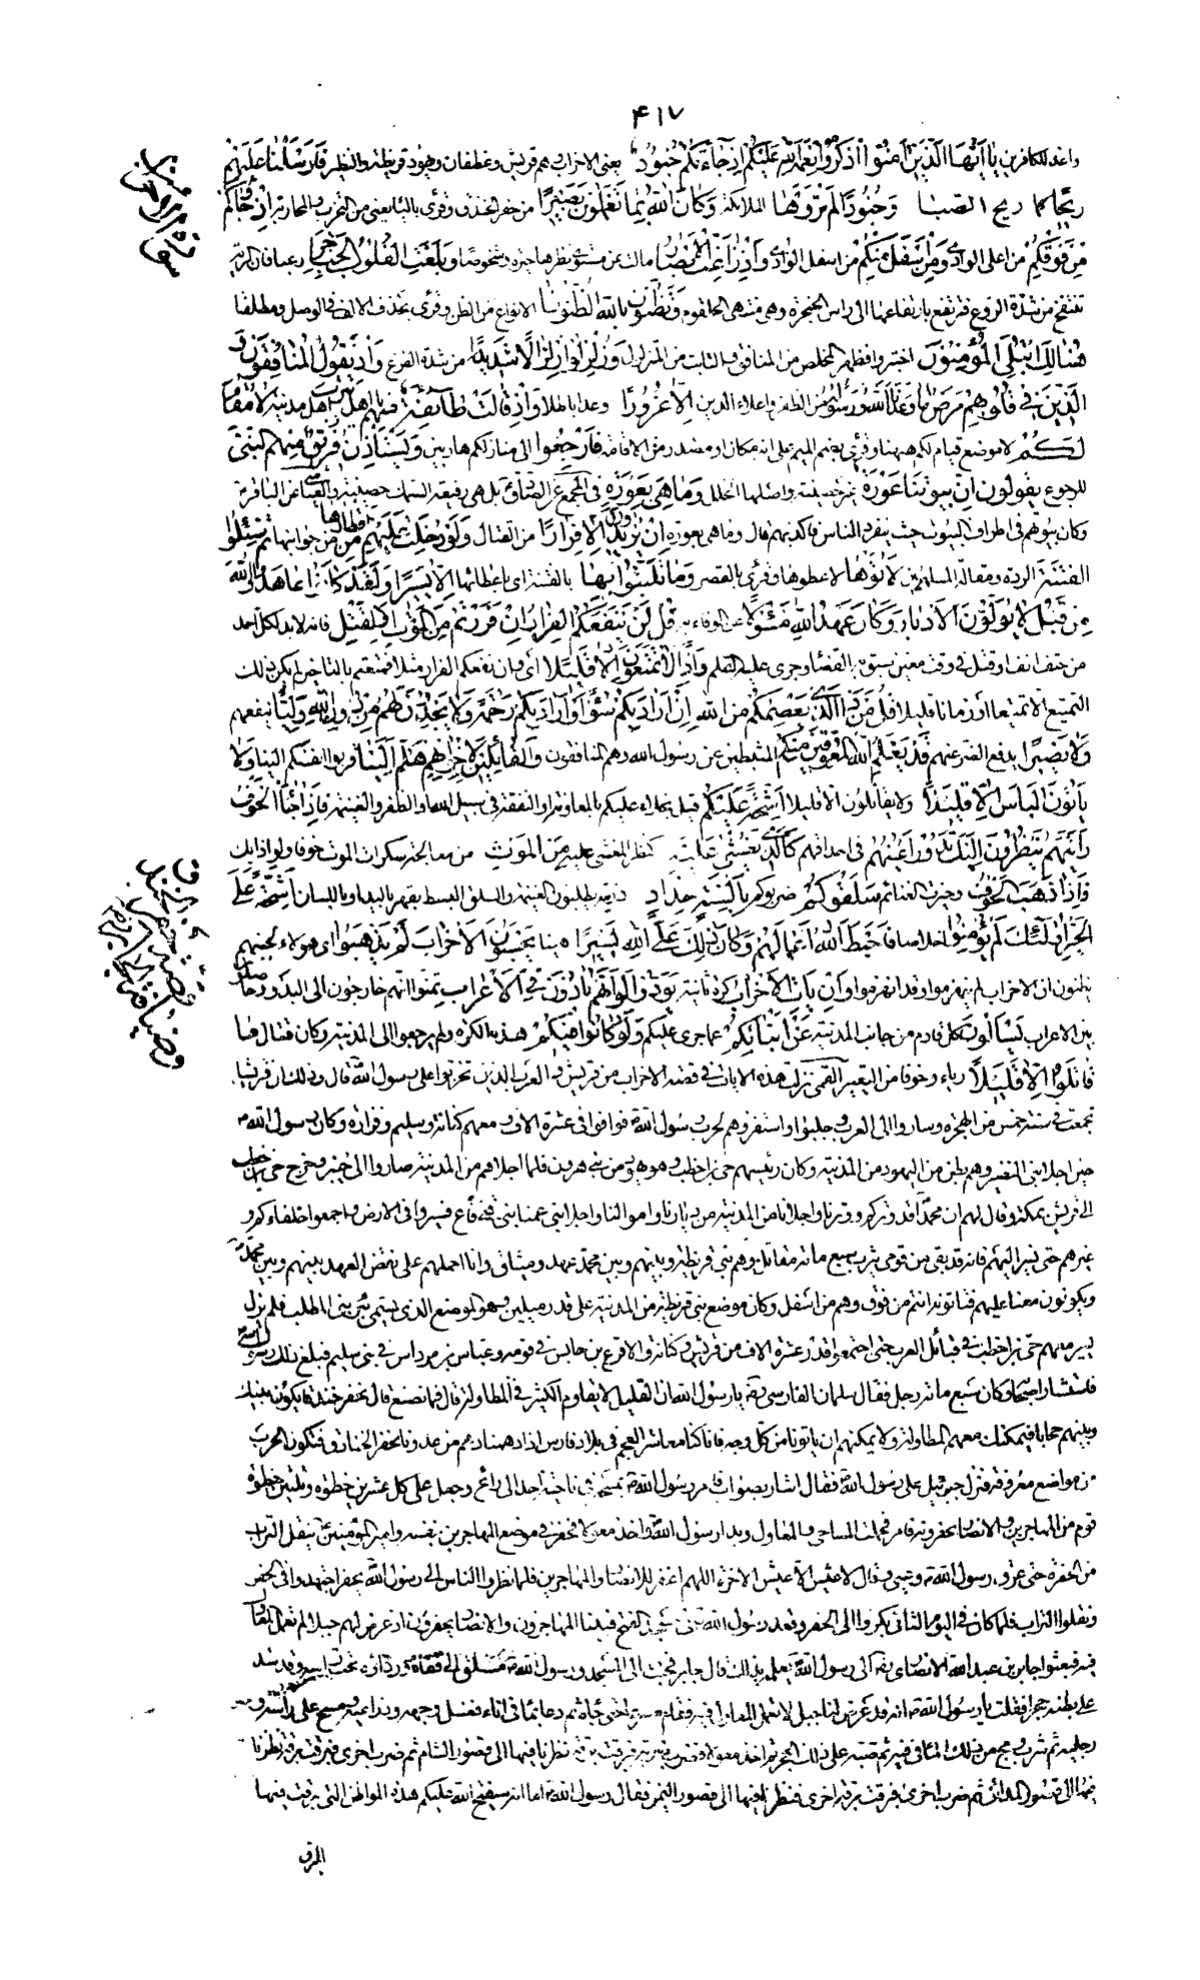 ۴۱۷
واعد للكافرين يا أَيُّهَا الَّذِينَ آمَنُوا اذْكُرُوا نِعْمَةَ اللَّهِ عَلَيْكُمْ إِذْ جَاءَتْكُمْ جُنُودٌ يعنى الاحزاب هم قريش وغطفان ويهود قريظة والنظير فَأَرْسَلْنَا عَلَيْهِمْ
رِيحًا ريح الصبا وَجُنُودًا لَمْ تَرَوْهَا الملائكة وَكَانَ اللَّهُ بِمَا تَعْمَلُونَ بَصِيرًا من حفر الخندق وقرى بالياء يعنى من التحزب والمحاربة إِذْ جَاؤُكُمْ
مِنْ فَوْقِكُمْ من اعلى الوادى وَمِنْ أَسْفَلَ مِنْكُمْ من اسفل الوادى وَإِذْ زَاغَتِ الْأَبْصَارُ مالت عن مستوى نظرها حيرة وشخوصا وَبَلَغَتِ الْقُلُوبُ الْحَنَاجِرَ رعبا فان الرية
تنتفخ من شدة الروع فترتفع بارتفاعها الى راس الحنجرة وهى منتهى الحلقوم وَتَظُنُّونَ بِاللَّهِ الظُّنُونَا الانواع من الظن وقرى بحذف الالف فى الوصل ومطلقا
هُنَالِكَ ابْتُلِيَ الْمُؤْمِنُونَ اختبروا فظهر المخلص من المنافق والثابت من المتزلزل وَزُلْزِلُوا زِلْزَالًا شَدِيدًا من شدة الفزع وَإِذْ يَقُولُ الْمُنَافِقُونَ وَ
الَّذِينَ فِي قُلُوبِهِمْ مَرَضٌ مَا وَعَدَنَا اللَّهُ وَرَسُولُهُ من الظفر واعلاء الدين إِلَّا غُرُورًا وعدا باطلا وَإِذْ قَالَتْ طَائِفَةٌ مِنْهُمْ يَا أَهْلَ يَثْرِبَ اهل مدينة لَا مُقَامَ
لَكُمْ لا موضع قيام لكم هيهنا وقرى بضم الميم على انه مكان او مصدر من الاقامة فَارْجِعُوا الى منازلكم هاربين وَيَسْتَأْذِنُ فَرِيقٌ مِنْهُمُ النَّبِيَّ
للرجوع يَقُولُونَ إِنَّ بُيُوتَنَا عَوْرَةٌ غير حصينة واصلها الخلل وَمَا هِيَ بِعَوْرَةٍ فى المجمع عن الصادق بل هى رفيعة السمك حصينة والعياشى عن الباقر
وكان بيوتهم فى اطراف البيوت حيث ينفرد الناس فاكذبهم قال وما هى بعورة إِنْ يُرِيدُونَ إِلَّا فِرَارًا من القتال وَلَوْ دُخِلَتْ عَلَيْهِمْ مِنْ أَقْطَارِهَا من جوانبها ثُمَّ سُئِلُوا
الْفِتْنَةَ الردة ومقاتلة المسلمين لَآتَوْهَا لاعطوها وقرى بالقصر وَمَا تَلَبَّثُوا بِهَا بالفتنة اى باعطائها إِلَّا يَسِيرًا وَلَقَدْ كَانُوا عَاهَدُوا اللَّهَ
مِنْ قَبْلُ لَا يُوَلُّونَ الْأَدْبَارَ وَكَانَ عَهْدُ اللَّهِ مَسْئُولًا عن الوفاء به قُلْ لَنْ يَنْفَعَكُمُ الْفِرَارُ إِنْ فَرَرْتُمْ مِنَ الْمَوْتِ أَوِ الْقَتْلِ فانه لابد لكل احد
من حتف انف او قتل فى وقت معين سبق به القضاء وجرى عليه القلم وَإِذًا لَا تُمَتَّعُونَ إِلَّا قَلِيلًا اى وان نفعكم الفرار مثلا فمتعتم بالتاخير لم يكن ذلك
التمتيع الا تمتيعا او زمانا قليلا قُلْ مَنْ ذَا الَّذِي يَعْصِمُكُمْ مِنَ اللَّهِ إِنْ أَرَادَ بِكُمْ سُوءًا أَوْ أَرَادَ بِكُمْ رَحْمَةً وَلَا يَجِدُونَ لَهُمْ مِنْ دُونِ اللَّهِ وَلِيًّا ينفعهم
وَلَا نَصِيرًا يدفع الضر عنهم قَدْ يَعْلَمُ اللَّهُ الْمُعَوِّقِينَ مِنْكُمْ المثبطين عن رسول الله وهم المنافقون وَالْقَائِلِينَ لِإِخْوَانِهِمْ هَلُمَّ إِلَيْنَا قربوا انفسكم الينا وَلَا
يَأْتُونَ الْبَأْسَ إِلَّا قَلِيلًا ولا يقاتلون الا قليلا أَشِحَّةً عَلَيْكُمْ قيل بخلاء عليكم بالمعاونة او النفقة فى سبيل الله او الظفر والغنيمة فَإِذَا جَاءَ الْخَوْفُ
رَأَيْتَهُمْ يَنْظُرُونَ إِلَيْكَ تَدُورُ أَعْيُنُهُمْ فى احداقهم كَالَّذِي يُغْشَى عَلَيْهِ كنظر المغشى عليه مِنَ الْمَوْتِ من معالجة سكرات الموت خوفا ولواذا بك
فَإِذَا ذَهَبَ الْخَوْفُ وحيزت الغنائم سَلَقُوكُمْ ضربوكم بِأَلْسِنَةٍ حِدَادٍ ذربة يطلبون الغنيمة والسلق البسط بقهر باليد او باللسان أَشِحَّةً عَلَى
الْخَيْرِ أُولَئِكَ لَمْ يُؤْمِنُوا اخلاصا فَأَحْبَطَ اللَّهُ أَعْمَالَهُمْ وَكَانَ ذَلِكَ عَلَى اللَّهِ يَسِيرًا هينا يَحْسَبُونَ الْأَحْزَابَ لَمْ يَذْهَبُوا اى هؤلاء لجبنهم
يظنون ان الاحزاب لم ينهزموا وقد انهزموا وَإِنْ يَأْتِ الْأَحْزَابُ كرة ثانية يَوَدُّوا لَوْ أَنَّهُمْ بَادُونَ فِي الْأَعْرَابِ تمنوا انهم خارجون الى البدو وحاصلون
بين الاعراب يَسْأَلُونَ كل قادم من جانب المدينة عَنْ أَنْبَائِكُمْ عما جرى عليكم وَلَوْ كَانُوا فِيكُمْ هذه الكرة ولم يرجعوا الى المدينة وكان قتال مَا
قَاتَلُوا إِلَّا قَلِيلًا رياء وخوفا من التعيير القمى نزلت هذه الايات فى قصة الاحزاب من قريش والعرب الذين تحزبوا على رسول الله قال وذلك ان قريشا
تجمعت فى سنة خمس من الهجرة وساروا الى العرب وجلبوا واستفزوهم لحرب رسول الله فوافوا فى عشرة الاف ومعهم كنانة وسليم وفزارة وكان رسول الله
حين اجلى بنى النضير وهم بطن من اليهود من المدينة وكان رئيسهم حى بن اخطب وهو يهودى من بنى هرون فلما اجلاهم من المدينة صاروا الى خيبر وخرج حى بن اخطب
الى قريش بمكة وقال لهم ان محمدا قد وتركم ووترنا واجلانا من المدينة من ديارنا واموالنا واجلى بنى عمنا بنى قينقاع فسيروا فى الارض واجمعوا حلفاءكم و
غيرهم حتى نسير اليهم فانه قد بقى من قومى بيثرب سبع مائة مقاتل وهم بنى قريظة وبينهم وبين محمد عهد وميثاق وانا احملهم على نقض العهد بينهم وبين محمد
ويكونون معنا عليهم فتاتونه انتم من فوق وهم من اسفل وكان موضع بنى قريظة من المدينة على قدر ميلين وهو الموضع الذى يسمى بئر بنى المطلب فلم يزل
يسير معهم حى بن اخطب فى قبائل العرب حتى اجتمعوا قدر عشرة الاف من قريش وكنانة والاقرع بن حابس فى قومه وعباس بن مرداس فى بنى سليم فبلغ ذلك رسول الله
فاستشار اصحابه وكان سبع مائة رجل فقال سلمان الفارسى يا رسول الله ان القليل لا يقاوم الكثير فى المطاولة قال فما نصنع قال نحفر خندقا يكون بينك
وبينهم حجابا فيمكنك معهم المطاولة ولا يمكنهم ان ياتونا من كل وجه فانا كنا معاشر العجم فى بلاد فارس اذا دهمنا دهم من عدونا نحفر الخنادق فتكون الحرب
من مواضع معروفة فنزل جبرئيل على رسول الله فقال اشار بصواب فامر رسول الله بمسحه من ناحية احد الى راتج وجعل على كل عشرين خطوة وثلثين خطوة
قوم من المهاجرين والانصار يحفرونه فامر فحملت المساحى والمعاول وبدا رسول الله واخذ معولا فحفر فى موضع المهاجرين بنفسه وامير المؤمنين ينقل التراب
من الحفرة حتى عرق رسول الله وعيى وقال لا عيش الا عيش الاخرة اللهم اغفر للانصار والمهاجرين فلما نظر الناس الى رسول الله يحفر اجتهدوا فى الحفر
ونقلوا التراب فلما كان فى اليوم الثانى بكروا الى الحفر وقعد رسول الله فى مسجد الفتح فبينا المهاجرون والانصار يحفرون اذ عرض لهم جبل لم تعمل المعاول
فيه فبعثوا جابر بن عبد الله الانصارى الى رسول الله يعلمه بذلك قال جابر فجئت الى المسجد ورسول الله مستلق الى قفاه ورداؤه تحت راسه وقد شد
على بطنه حجرا فقلت يا رسول الله انه قد عرض لنا جبل لا تعمل المعاول فيه فقام مسرعا حتى جاءه ثم دعا بماء فى اناء فغسل وجهه وذراعيه ومسح على راسه و
رجليه ثم شرب ومج من ذلك الماء فى فيه ثم صبه على ذلك الحجر ثم اخذ معولا فضرب ضربة فبرقت برقة نظرنا فيها الى قصور الشام ثم ضرب اخرى فبرقت برقة نظرنا
فيها الى قصور المدائن ثم ضرب اخرى فبرقت برقة اخرى فنظرنا فيها الى قصور اليمن فقال رسول الله اما انه سيفتح الله عليكم هذه المواطن التى برقت فيها
البرق